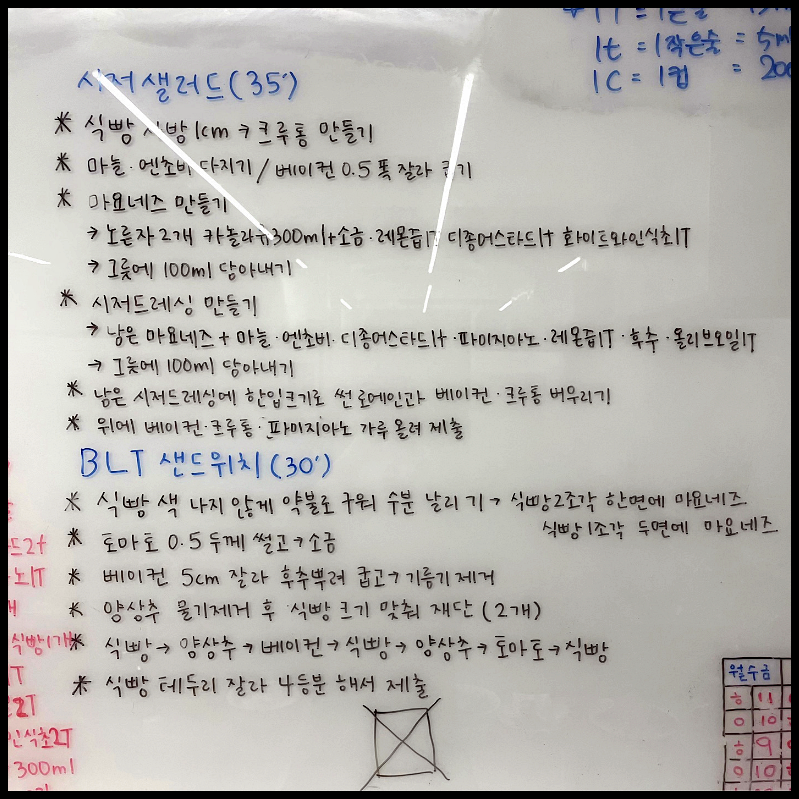 1t = 1작은술 = 5ml
1C = 1컵 = 200
시저샐러드(35')
* 식빵 사방 1cm → 크루통 만들기
* 마늘·엔초비 다지기 / 베이컨 0.5 폭 잘라 굽기
* 마요네즈 만들기
→ 노른자 2개 카놀라유300ml+소금·레몬즙1T 디종머스타드1t 화이트와인식초1T
→ 그릇에 100ml 담아내기
* 시저드레싱 만들기
→ 남은 마요네즈 + 마늘·엔초비·디종머스타드1t·파미지아노·레몬즙1T·후추·올리브오일1T
→ 그릇에 100ml 담아내기
* 남은 시저드레싱에 한입크기로 썬 로메인과 베이컨·크루통 버무리기
* 위에 베이컨·크루통·파미지아노 가루 올려 제출
BLT 샌드위치(30')
* 식빵 색 나지 않게 약불로 구워 수분 날리기 → 식빵2조각 한면에 마요네즈
식빵1조각 두면에 마요네즈
* 토마토 0.5 두께 썰고→소금
* 베이컨 5cm 잘라 후추뿌려 굽고→기름기제거
* 양상추 물기제거 후 식빵크기 맞춰 재단 (2개)
* 식빵→ 양상추→베이컨→식빵→ 양상추→토마토→식빵
* 식빵 테두리 잘라 4등분 해서 제출
드2t
노1T
식빵1개
1T
2T
인식초2T
300ml
월수금
ㅎ 11
ㅇ 10
ㅎ 9
ㅇ 10